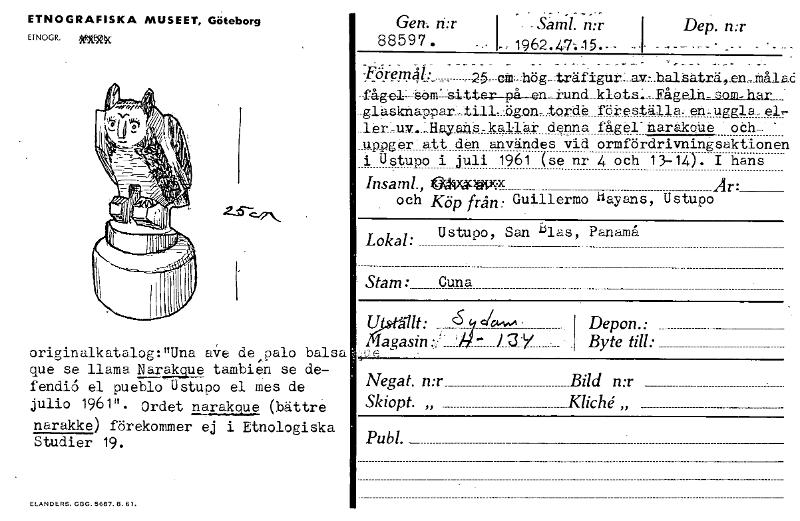 ETNOGRAFISKA MUSEET, Göteborg
ETNOGR.
25 cm
originalkatalog:"Una ave de palo balsa
que se llama Narakque también se de-
fendió el pueblo Ustupo el mes de
julio 1961". Ordet narakque (bättre
narakke) förekommer ej i Etnologiska
Studier 19.
ELANDERS, GBG. 5687. 8. 61.
Gen. n:r
88597.
Saml. n:r
1962.47.15.
Dep. n:r
Föremål: 25 cm hög träfigur av balsaträ, en målad
fågel som sitter på en rund klots. Fågeln som har
glasknappar till ögon torde föreställa en uggla el-
ler uv. Hayans kallar denna fågel narakque och
uppger att den användes vid ormfördrivningsaktionen
i Ustupo i juli 1961 (se nr 4 och 13-14). I hans
Insaml., År:
och Köp från: Guillermo Hayans, Ustupo
Lokal: Ustupo, San Blas, Panamá
Stam: Cuna
Utställt: Sydam. Depon.:
Magasin: H-134 Byte till:
Negat. n:r Bild n:r
Skiopt. „ Kliché „
Publ.